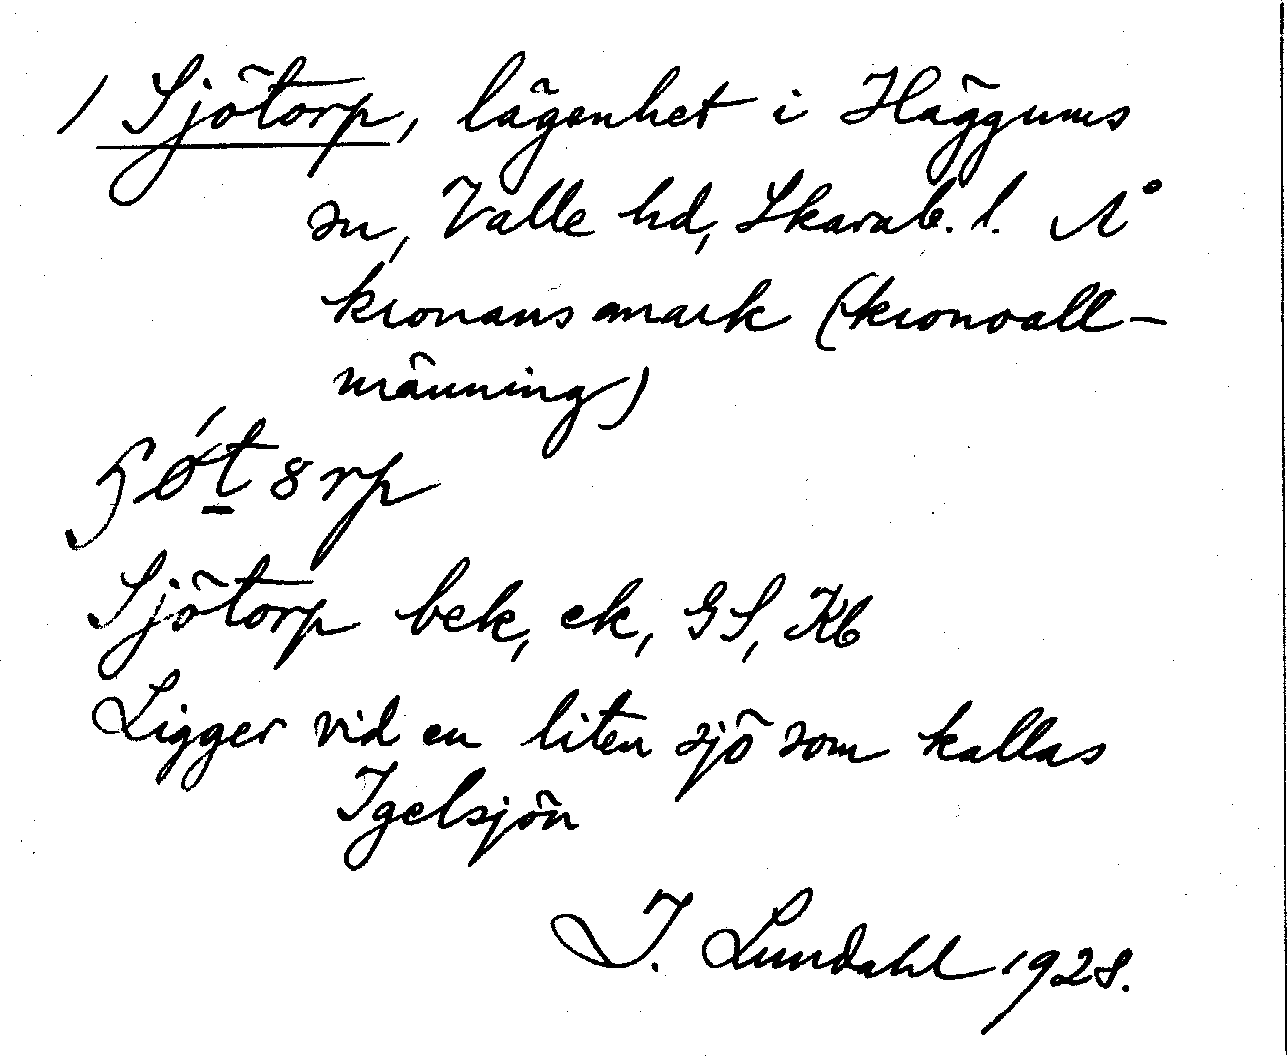 / Sjötorp, lägenhet i Häggums
sn, Valle hd, Skarab. l. Å
kronans mark (kronoall-
männing)
Sjötorp bek, ek, GS, Kb
Ligger vid en liten sjö som kallas
Igelsjön
I. Lundahl 1928.